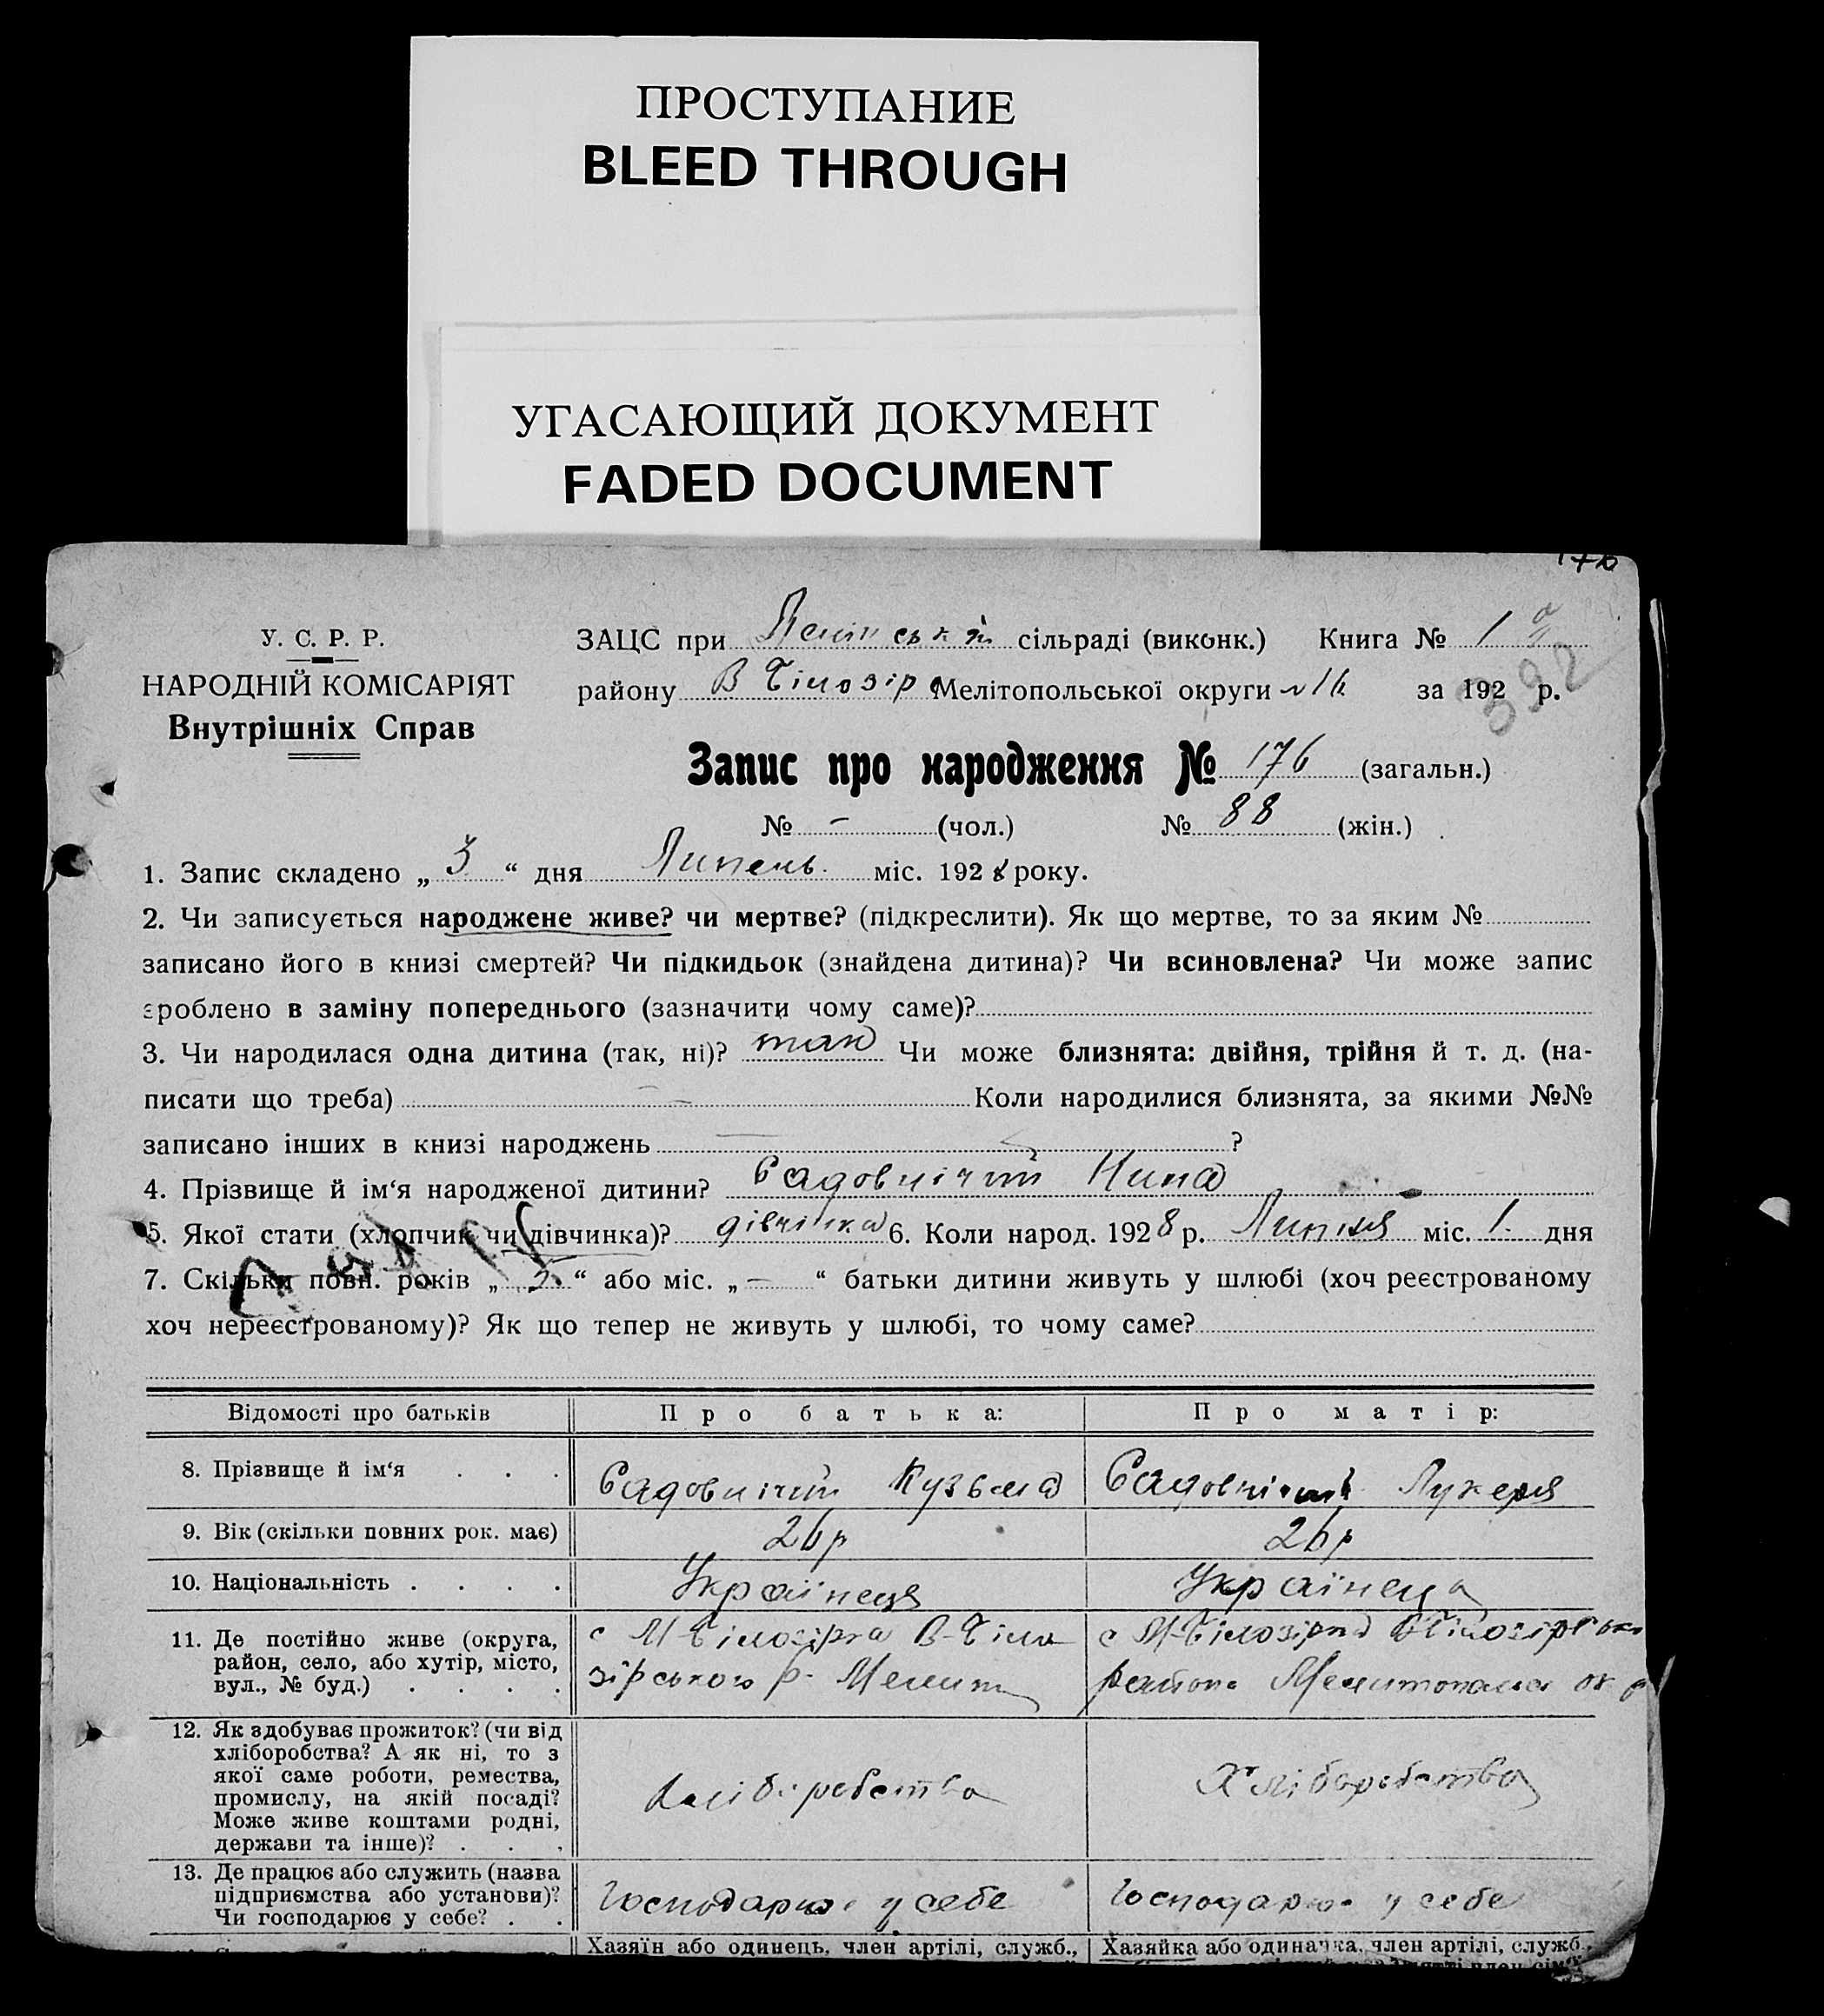 ПРОСТУПАНИЕ
BLEED THROUGH
УГАСАЮЩИЙ ДОКУМЕНТ
FADED DOCUMENT
176
У. С. Р. Р.
НАРОДНІЙ КОМІСАРІЯТ
Внутрішніх Справ
ЗАЦС при Ленінській сільраді (виконк.) Книга № 1
району В Білозір Мелітопольської округи за 192 р.
392
Запис про народження № 176 (загальн.)
№ - (чол.) № 88 (жін.)
1. Запис складено „ 3 “ дня Липень міс. 1928 року.
2. Чи записується народжене живе? чи мертве? (підкреслити). Як що мертве, то за яким №
записано його в книзі смертей? Чи підкидьок (знайдена дитина)? Чи всиновлена? Чи може запис
зроблено в заміну попереднього (зазначити чому саме)?
3. Чи народилася одна дитина (так, ні)? так Чи може близнята: двійня, трійня й т. д. (на-
писати що треба) — Коли народилися близнята, за якими №№
записано інших в книзі народжень — ?
4. Прізвище й ім‘я народженої дитини? Садовничий Нина
5. Якої стати (хлопчик чи дівчинка)? дівчінка 6. Коли народ. 1928 р. Липня міс. 1 дня
7. Скільки повн. років „ 5 “ або міс. „ — “ батьки дитини живуть у шлюбі (хоч реєстрованому
хоч нереєстрованому)? Як що тепер не живуть у шлюбі, то чому саме?
Відомості про батьків Про батька: Про матір:
8. Прізвище й ім‘я . . . Садовничий Кузьма Садовничий Лукеря
9. Вік (скільки повних рок. має) 26 р 26 р
10. Національність . . . . Українець Українеца
11. Де постійно живе (округа, район, село, або хутір, місто, вул., № буд.) . . . .
с М-Білозірка В-Біло
зірського р. Мелит
с М-Білозірка ВБілозірсько
району Мелитополь ок
12. Як здобуває прожиток? (чи від хліборобства? А як ні, то з якої саме роботи, ремества, промислу, на якій посаді? Може живе коштами родні, держави та інше)? . . .
Хліборобства Хліборобства
13. Де працює або служить (назва підприємства або установи)? Чи господарює у себе? . .
Господарює у себе Господарює у себе
Хазяїн або одинець, член артілі, служб., Хазяйка або одиначка, член артілі, служб.,